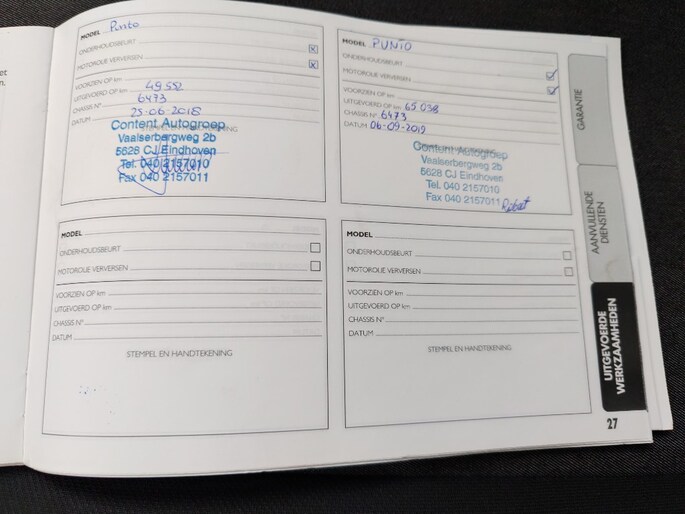 MODEL Punto
ONDERHOUDSBEURT
MOTOROLIE VERVERSEN
VOORZIEN OP km
UITGEVOERD OP km 49 552
CHASSIS N° 6473
DATUM 25-06-2018
STEMPEL EN HANDTEKENING
Content Autogroep
Vaalserbergweg 2b
5628 CJ Eindhoven
Tel. 040 2157010
Fax 040 2157011
MODEL PUNTO
ONDERHOUDSBEURT
MOTOROLIE VERVERSEN
VOORZIEN OP km
UITGEVOERD OP km 65 038
CHASSIS N° 6473
DATUM 06-09-2019
Content Autogroep
Vaalserbergweg 2b
5628 CJ Eindhoven
Tel. 040 2157010
Fax 040 2157011
MODEL
ONDERHOUDSBEURT
MOTOROLIE VERVERSEN
VOORZIEN OP km
UITGEVOERD OP km
CHASSIS N°
DATUM
STEMPEL EN HANDTEKENING
MODEL
ONDERHOUDSBEURT
MOTOROLIE VERVERSEN
VOORZIEN OP km
UITGEVOERD OP km
CHASSIS N°
DATUM
STEMPEL EN HANDTEKENING
GARANTIE
AANVULLENDE
DIENSTEN
UITGEVOERDE
WERKZAAMHEDEN
27